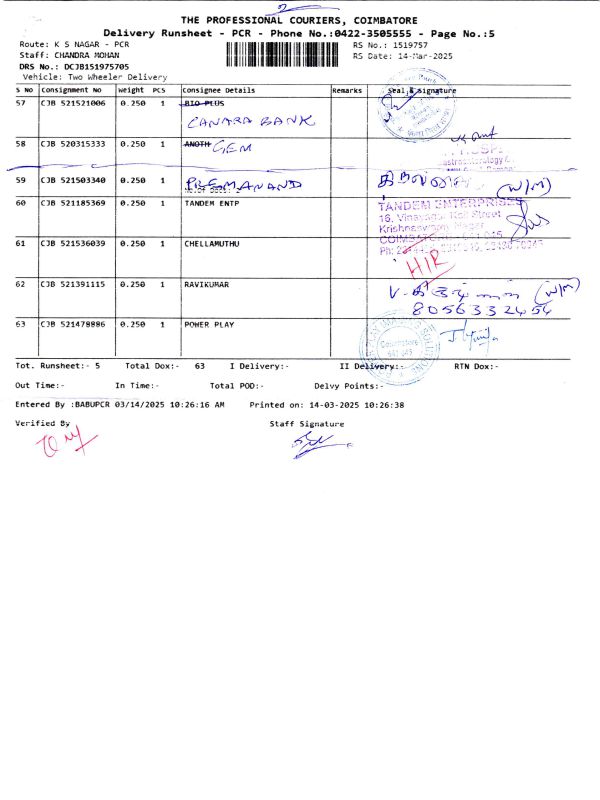 THE PROFESSIONAL COURIERS, COIMBATORE
Delivery Runsheet - PCR - Phone No.:0422-3505555 - Page No.:5
Route: K S NAGAR - PCR
RS No.: 1519757
Staff: CHANDRA MOHAN
RS Date: 14-Mar-2025
DRS No.: DCJB151975705
Vehicle: Two Wheeler Delivery
S No Consignment No Weight PCS Consignee Details Remarks Seal & Signature
57 CJB 521521006 0.250 1 BIO PLUS
CANARA BANK
58 CJB 520315333 0.250 1 ANOTH GEM
59 CJB 521503340 0.250 1 PREMANAND
(W/M)
60 CJB 521185369 0.250 1 TANDEM ENTP
TANDEM ENTERPRISES
16, Vinayagar Koil Street
Krishnaswamy Nagar
COIMBATORE - 641 045
61 CJB 521536039 0.250 1 CHELLAMUTHU
H/R
62 CJB 521391115 0.250 1 RAVIKUMAR
(W/M)
8056332454
63 CJB 521478886 0.250 1 POWER PLAY
Coimbatore
641 045
Tot. Runsheet:- 5 Total Dox:- 63 I Delivery:- II Delivery:- RTN Dox:-
Out Time:- In Time:- Total POD:- Delvy Points:-
Entered By :BABUPCR 03/14/2025 10:26:16 AM Printed on: 14-03-2025 10:26:38
Verified By Staff Signature